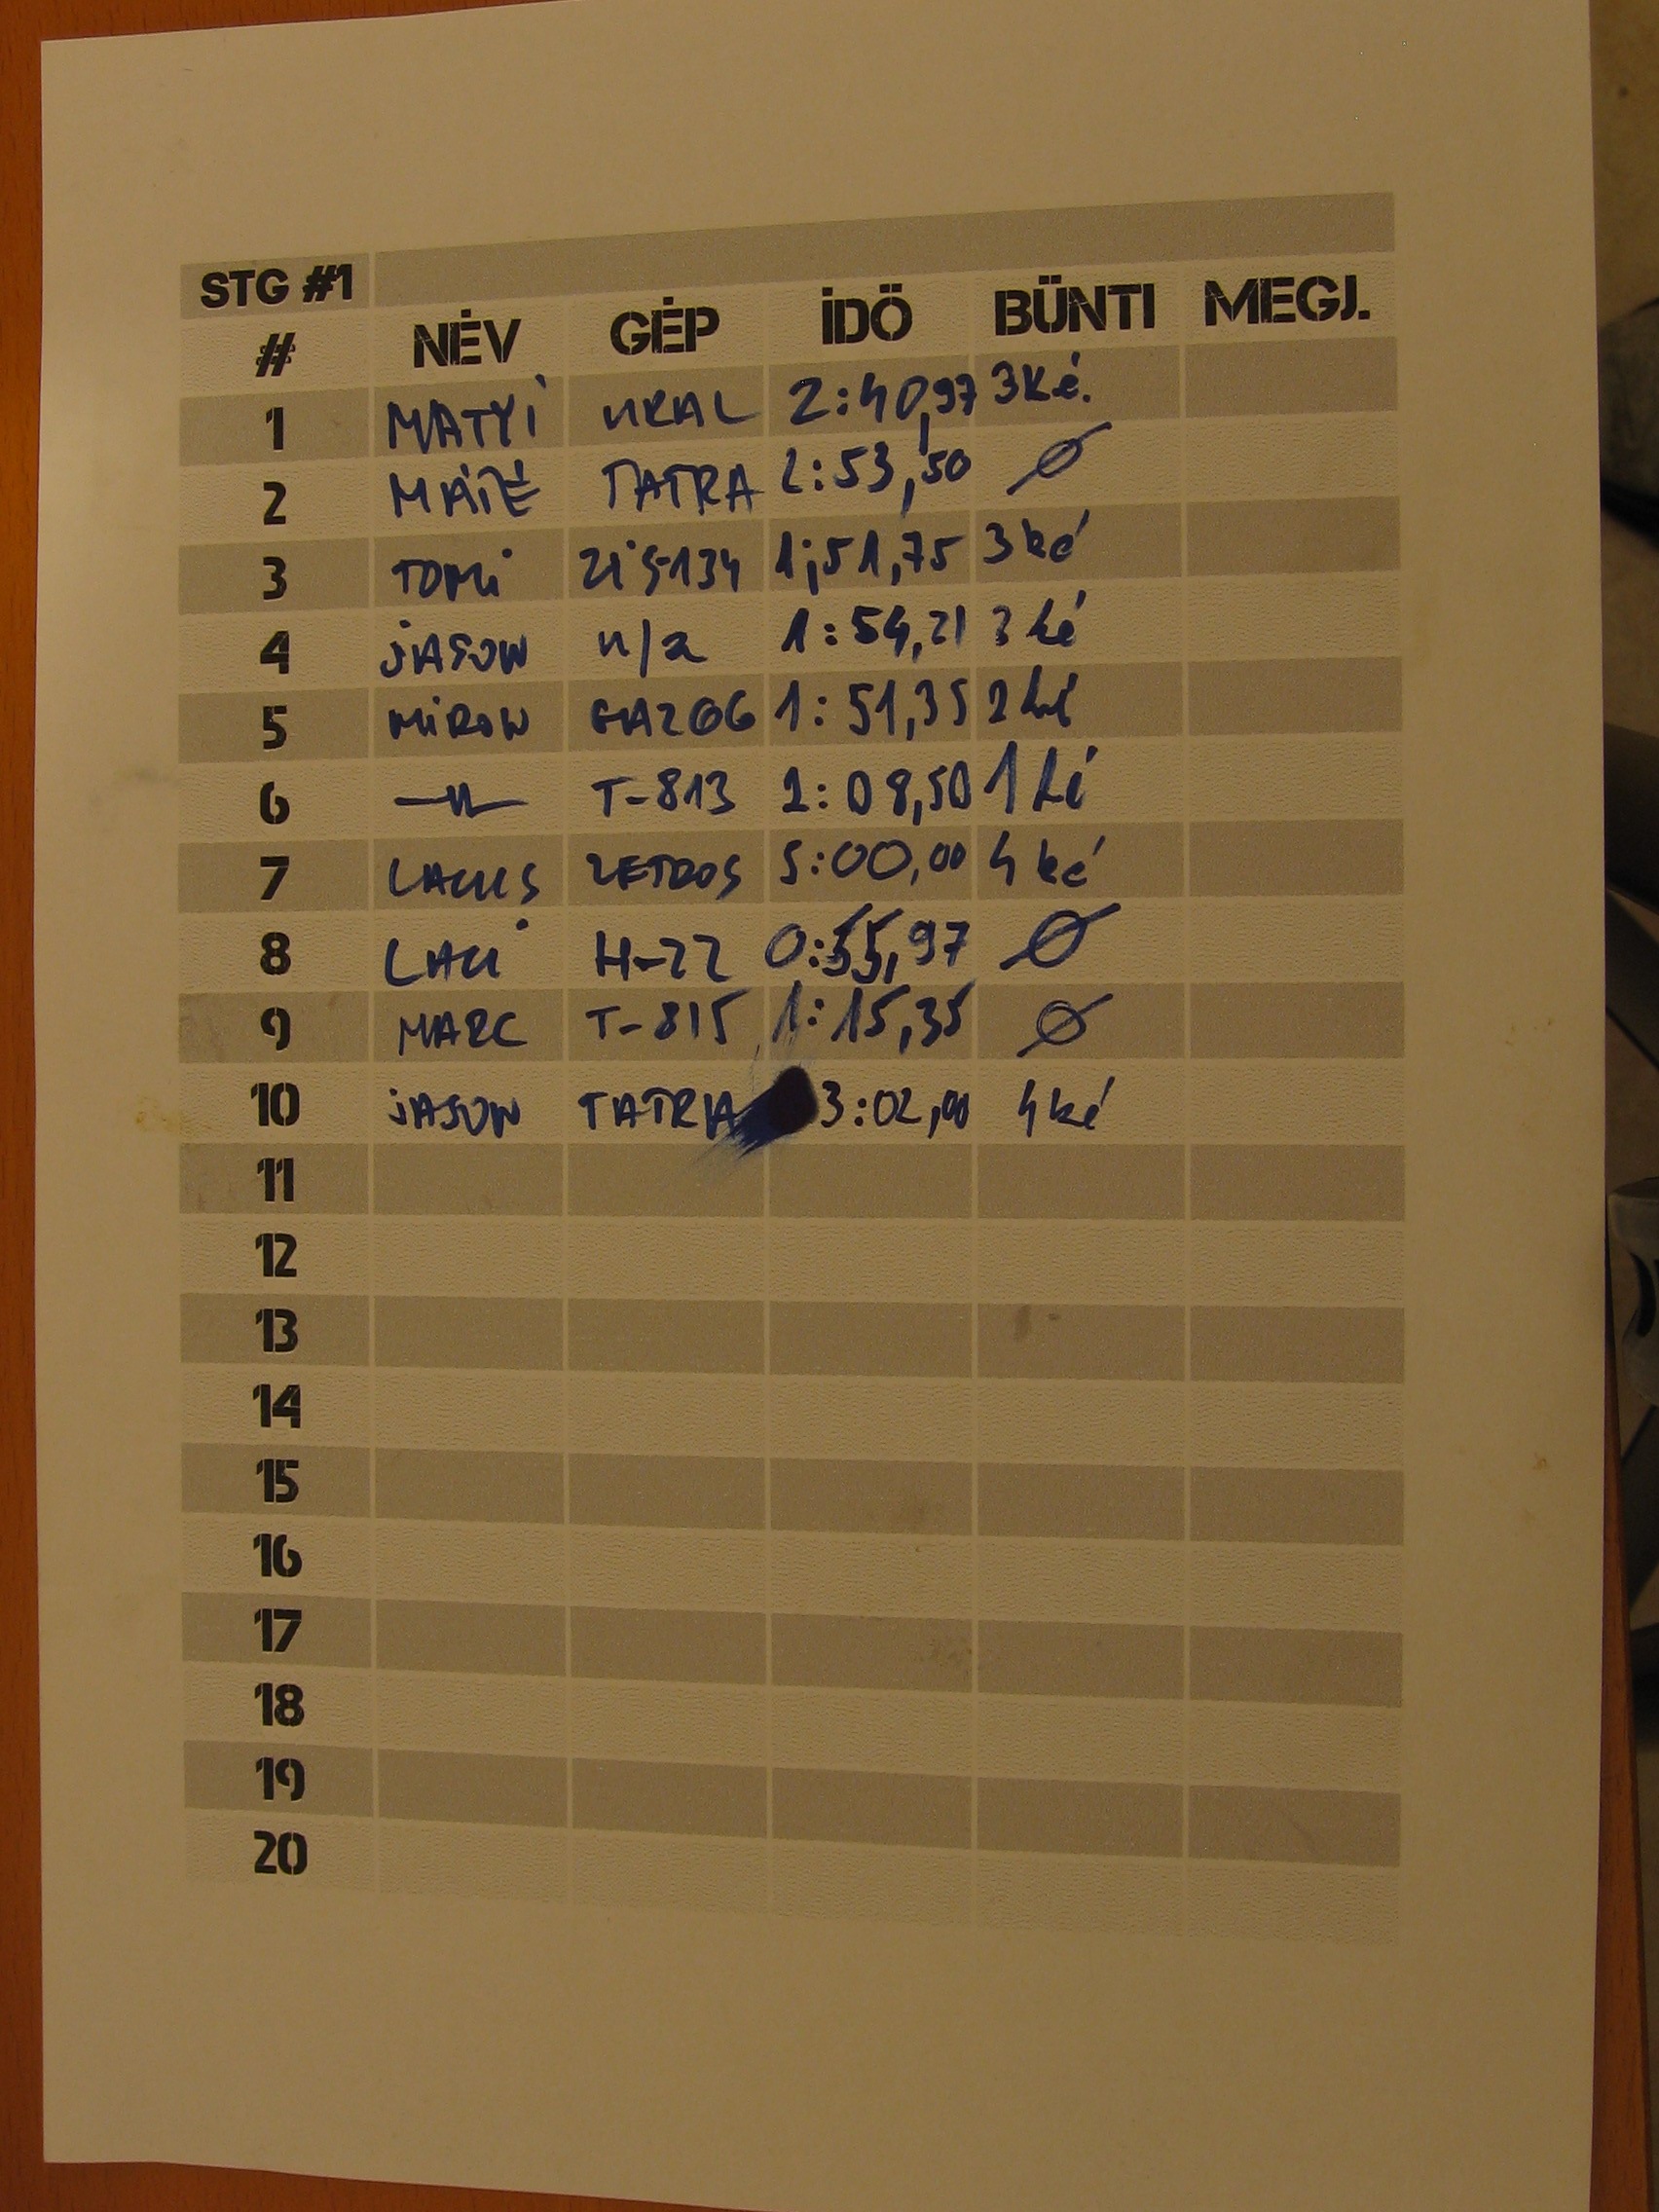 STG #1
# NÉV GÉP İDÖ BÜNTI MEGJ.
1 MATYI URAL 2:40,97 3Ké.
2 MÁTÉ TATRA 2:53,50 Ø
3 TOMi ZiS-134 1;51,75 3 ké
4 JASON n/a 1:54,21 3 ké
5 MiRON GAZ66 1:51,35 2 ké
6 —〃— T-813 2:08,50 1 ké
7 ZETROS 5:00,00 4 ké
8 LACI H-22 0:55,97 Ø
9 MARC T-815 1:15,35 Ø
10 JASON TATRA 3:02,00 4 ké
11
12
13
14
15
16
17
18
19
20